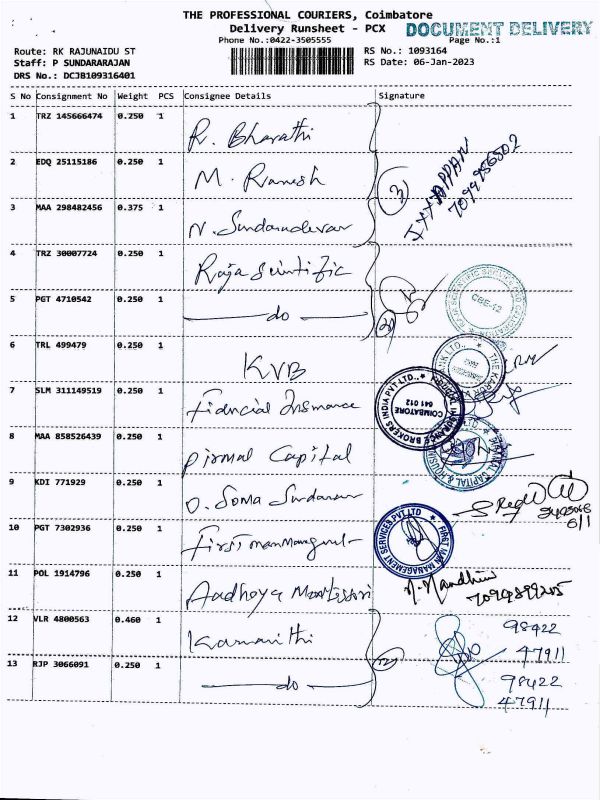 THE PROFESSIONAL COURIERS, Coimbatore
Delivery Runsheet - PCX
DOCUMENT DELIVERY
Phone No.:0422-3505555
Page No.:1
Route: RK RAJUNAIDU ST
RS No.: 1093164
Staff: P SUNDARARAJAN
RS Date: 06-Jan-2023
DRS No.: DCJB109316401
S No Consignment No Weight PCS Consignee Details Signature
1 TRZ 145666474 0.250 1 R. Bharathi
2 EDQ 25115186 0.250 1 M. Ramesh
3 MAA 298482456 0.375 1 N. Sundaradevar
3
IYYAPPAN
4 TRZ 30007724 0.250 1 Raja Scintific
5 PGT 4710542 0.250 1 do
CBE-12
6 TRL 499479 0.250 1 KVB
7 SLM 311149519 0.250 1 Fidncial Insmance
INSURANCE BROKERS INDIA PVT LTD.,
COIMBATORE
641 012
8 MAA 858526439 0.250 1 pirmal Capital
PIRAMAL CAPITAL & HOUSING
9 KDI 771929 0.250 1 D. Soma Sundaram
6/1
10 PGT 7302936 0.250 1 First man
FIRST MAN MANAGEMENT SERVICES PVT LTD
11 POL 1914796 0.250 1 Aadhoya
N. Nandhini
12 VLR 4800563 0.460 1
98422
47911
13 RJP 3066091 0.250 1 do
98422
47911